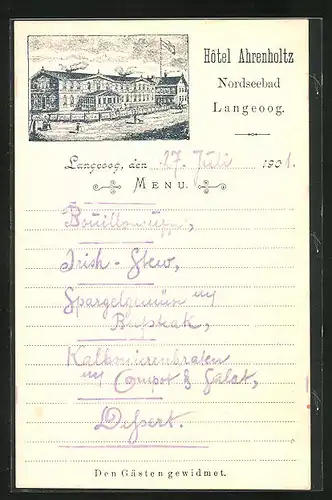 Hôtel Ahrenholtz
Nordseebad
Langeoog.
Langeoog, den 17. Juli 1901.
MENU.
Bouillonsuppe,
Irish-Stew,
Spargelgemüse m/
Beefsteak,
Kalbsnierenbraten
m/ Compot & Salat,
Dessert.
Den Gästen gewidmet.